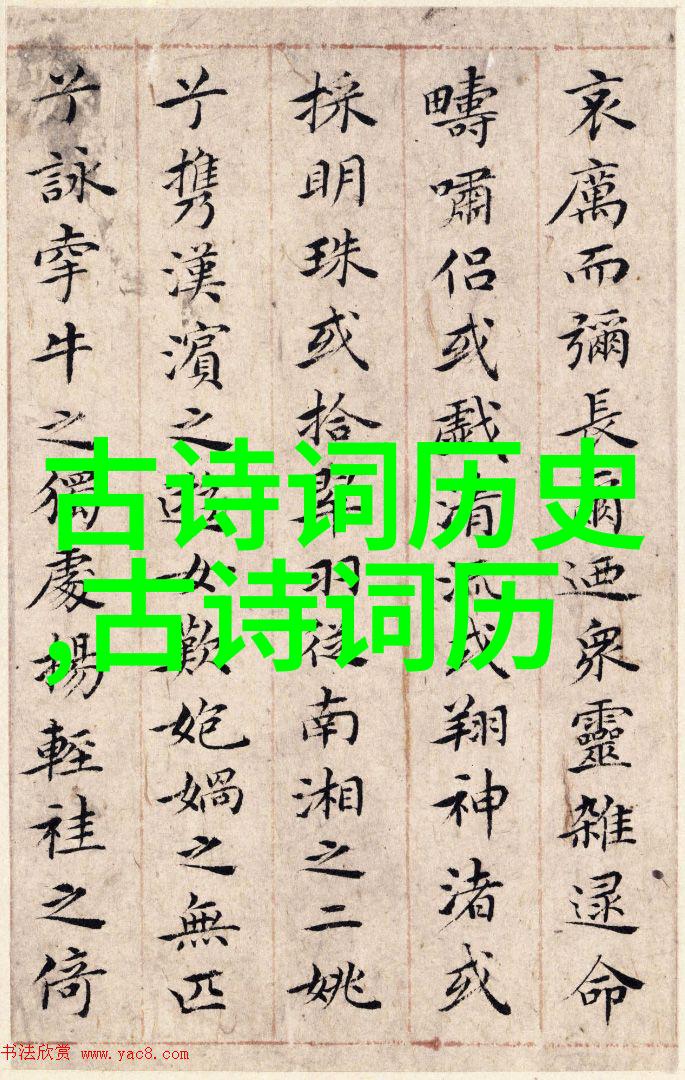 哀厲而彌長爾迺衆靈雜遝命
疇嘯侶或戲清流或翔神渚或
採明珠或拾翠羽從南湘之二姚
兮携漢濱之女歎媧之無匹
兮詠牽牛之獨處揚輕袿之倚
古诗词历史
,古诗词历
书法欣赏 www.yac8.com